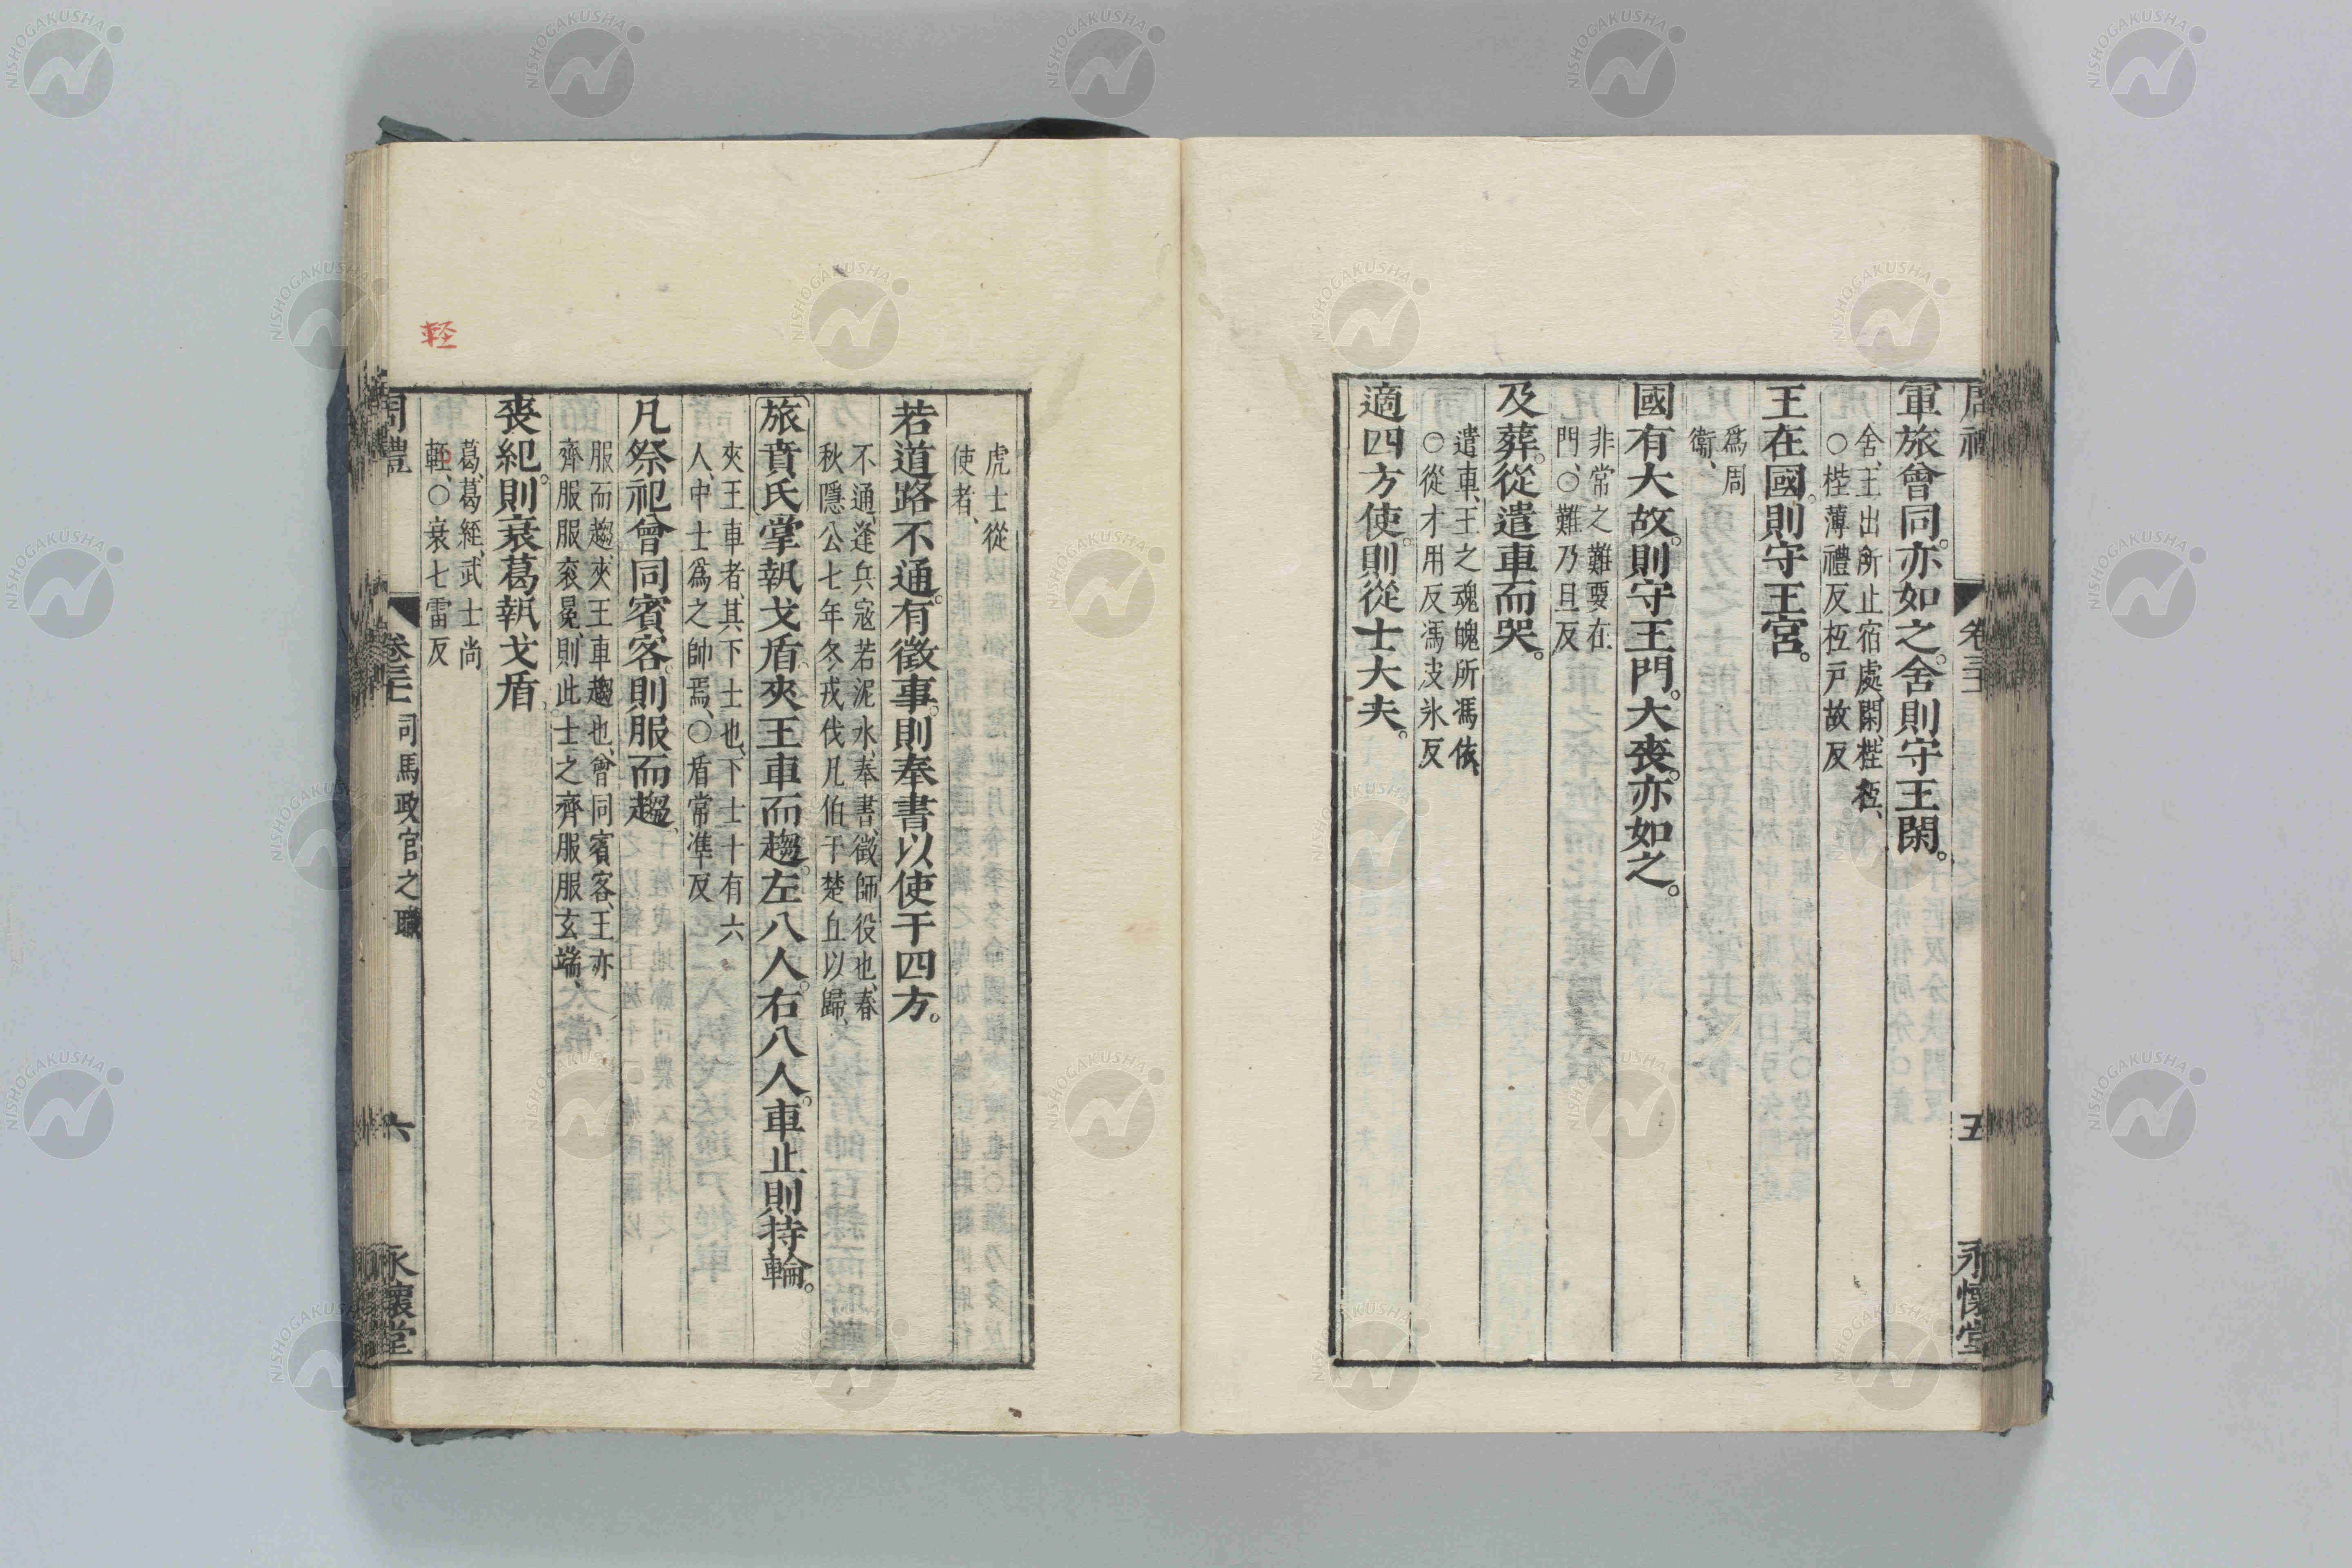 周禮 卷三十一 五 永懷堂
軍旅曾同。亦如之。舍則守王閑。
舍、王出所止宿處、閑、梐枑、
○梐薄禮反枑戸故反
王在國。則守王宮。
爲周
衞、
國有大故。則守王門。大喪。亦如之。
非常之難要在
門、○難乃旦反
及葬。從遣車而哭。
遣車、王之魂魄所馮依、
○從才用反馮皮氷反
適四方使。則從士大夫。
虎士從
使者、
若道路不通。有徵事。則奉書以使于四方。
不通逢兵寇若泥水、奉書、徵師役也、春
秋隱公七年冬戎伐凡伯于楚丘以歸、
旅賁氏掌執戈盾夾王車而趨。左八人。右八人。車止則持輪。
夾王車者、其下士也、下士十有六
人、中士爲之帥焉、○盾常準反
凡祭祀曾同賓客。則服而趨、
服而趨、夾王車趨也、曾同賓客、王亦
齊服服衮冕、則此士之齊服服玄端、
喪紀。則衰葛執戈盾、
葛、葛絰、武士尚
輕、○衰七雷反
軽
周禮 卷三十一 司馬政官之職 六 永懷堂